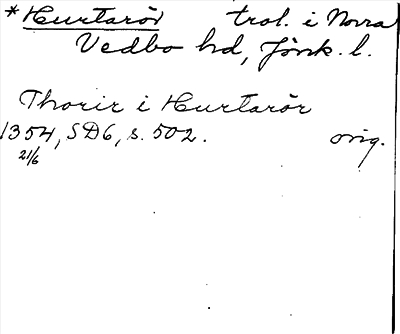 *Hurtarör trol. i Norra
Vedbo hd, Jönk. l.
Thorir i Hurtarör
1354, SD6, s. 502. orig.
21/6